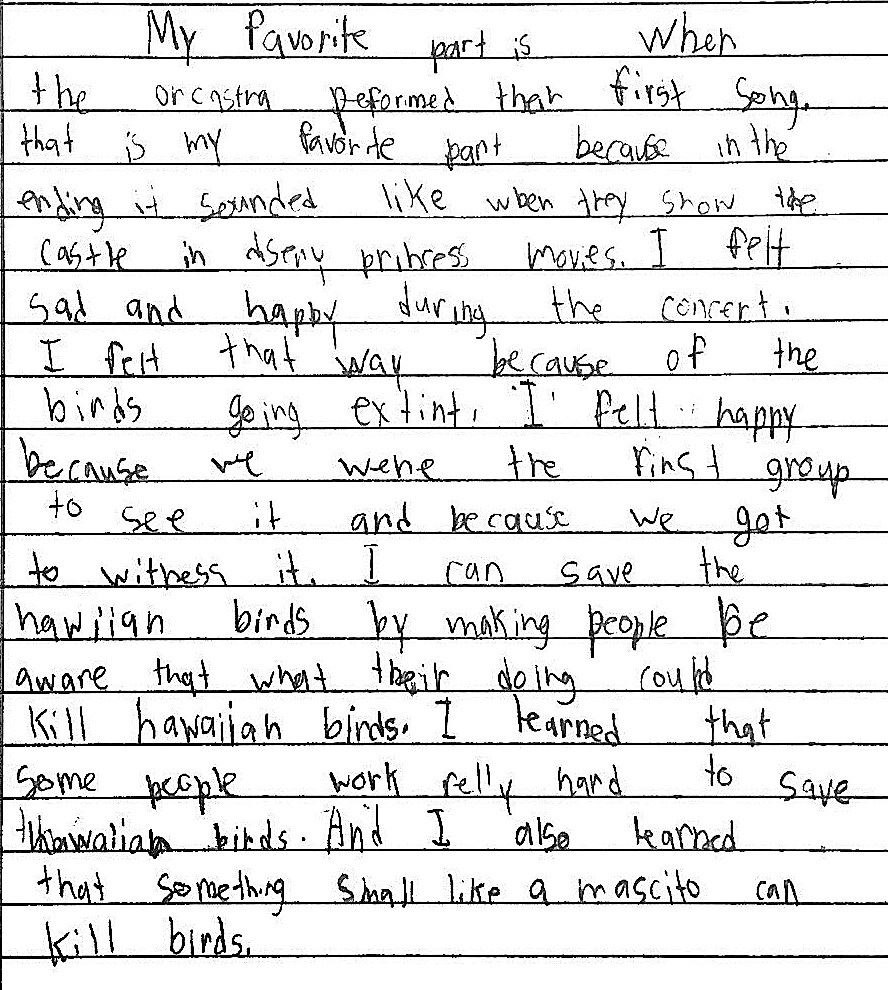 My favorite part is when
the orcastra peformed their first song.
that is my favorite part because in the
ending it sounded like when they show the
castle in diseny princess movies. I felt
sad and happy during the concert.
I felt that way because of the
birds going extint. I felt happy
because we were the first group
to see it and because we got
to witness it. I can save the
hawiian birds by making people be
aware that what their doing could
kill hawaiian birds. I learned that
some people work relly hard to save
hawaiian birds. And I also learned
that something small like a mascito can
kill birds.